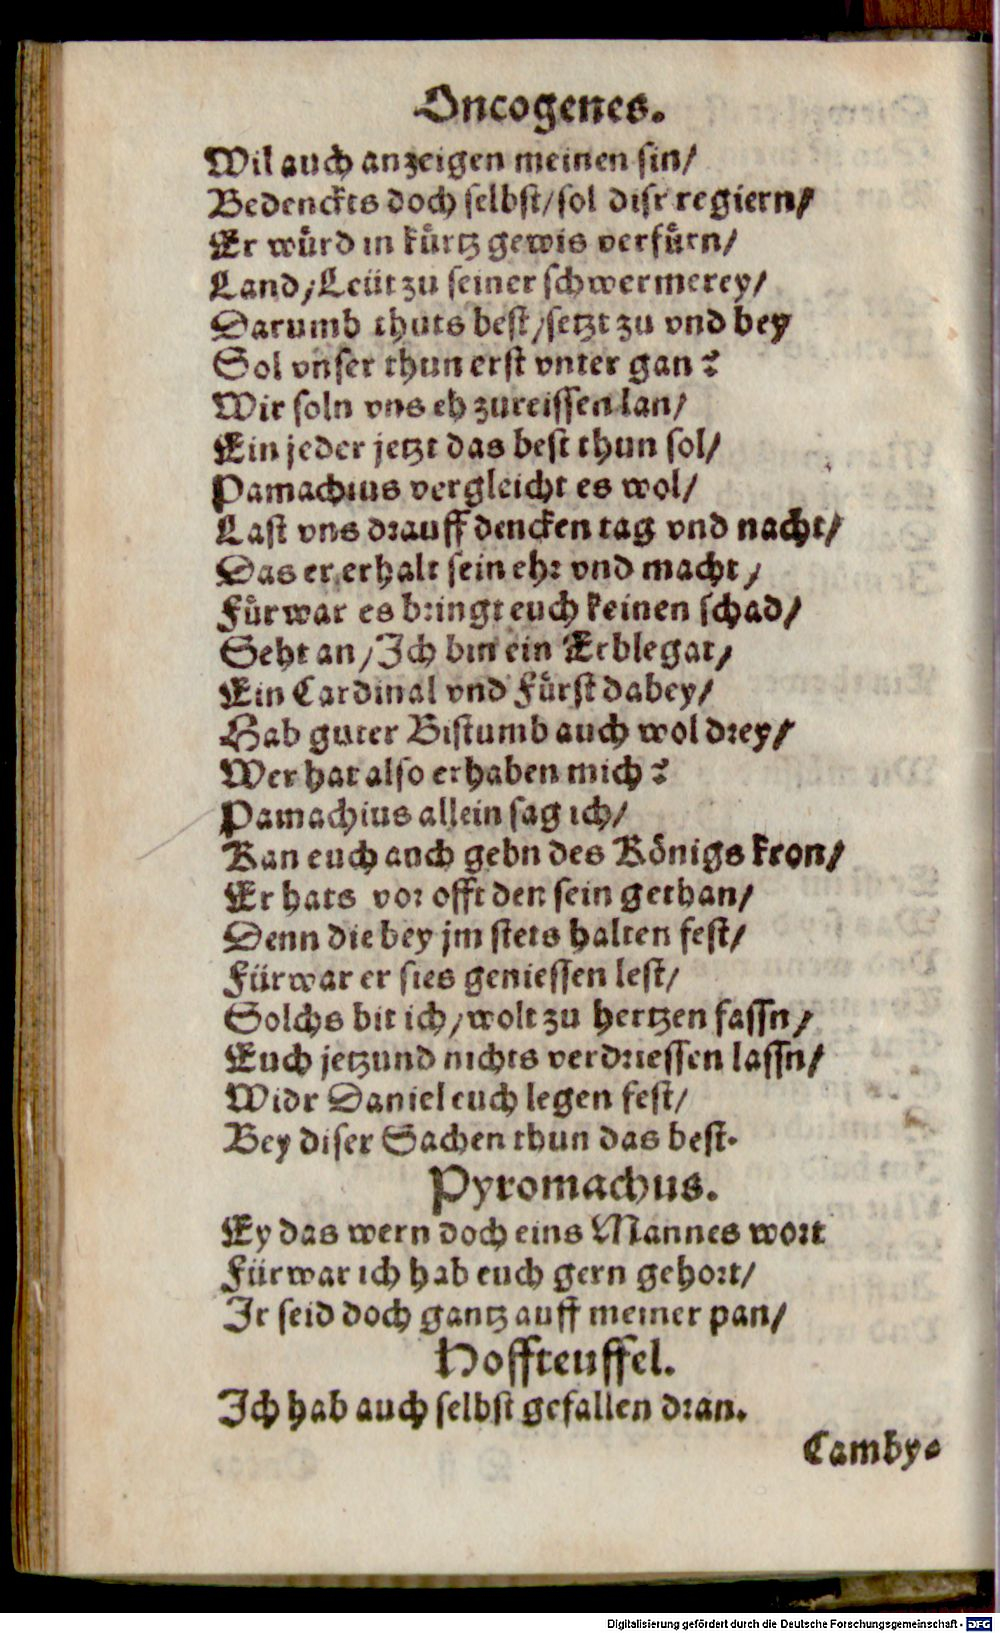 Oncogenes.
Wil auch anzeigen meinen sin/
Bedenckts doch selbst/sol disr regiern/
Er wůrd in kůrtz gewis verfůrn/
Land/Leüt zu seiner schwermerey/
Darumb thuts best/setzt zu vnd bey
Sol vnser thun erst vnter gan?
Wir soln vns eh zureissen lan/
Ein jeder jetzt das best thun sol/
Pamachius vergleicht es wol/
Last vns drauff dencken tag vnd nacht/
Das er erhalt sein ehr vnd macht/
Fůrwar es bringt euch keinen schad/
Seht an/Ich bin ein Erblegat/
Ein Cardinal vnd Fůrst dabey/
Hab guter Bistumb auch wol drey/
Wer hat also erhaben mich?
Pamachius allein sag ich/
Kan euch auch gebn des Kőnigs kron/
Er hats vor offt den sein gethan/
Denn die bey jm stets halten fest/
Fürwar er sies geniessen lest/
Solchs bit ich/wolt zu hertzen fassn/
Euch jetzund nichts verdriessen lassn/
Widr Daniel euch legen fest/
Bey diser Sachen thun das best.
Pyromachus.
Ey das wern doch eins Mannes wort
Fürwar ich hab euch gern gehort/
Ir seid doch gantz auff meiner pan/
Hoffteuffel.
Ich hab auch selbst gefallen dran.
Camby-
Digitalisierung gefördert durch die Deutsche Forschungsgemeinschaft - DFG